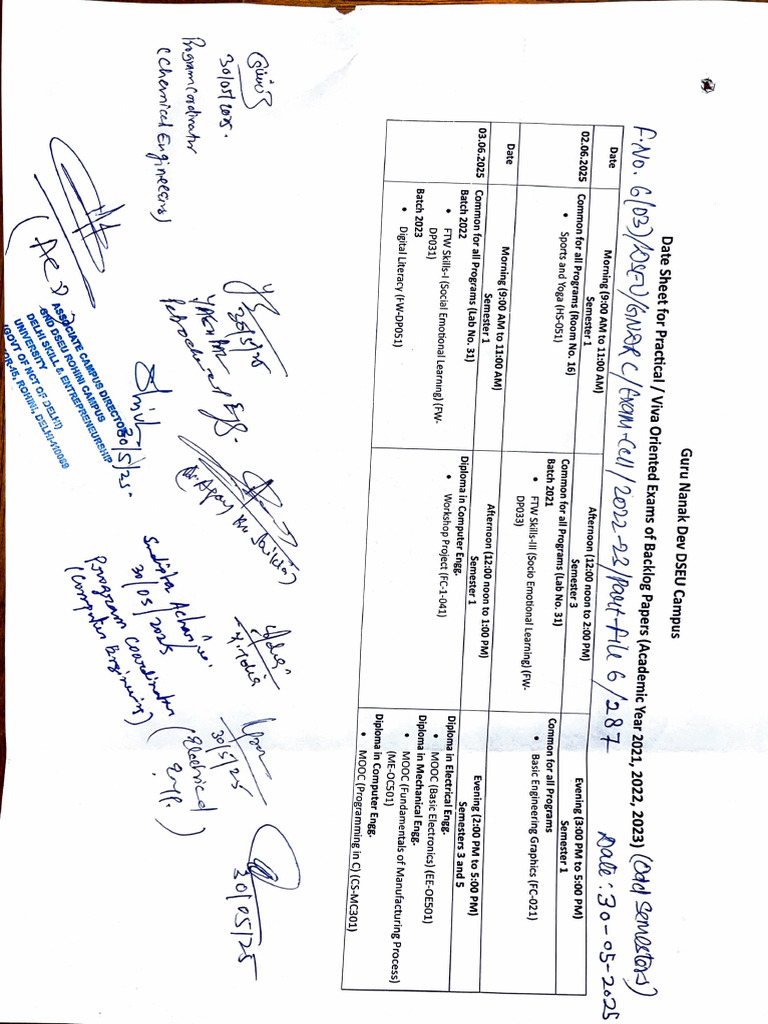 Guru Nanak Dev DSEU Campus
Date Sheet for Practical / Viva Oriented Exams of Backlog Papers (Academic Year 2021, 2022, 2023) (Odd Semesters)
F.No. 6/03/DSEU/GNDRC/Exam-Cell/2022-23/Part-File 6/287
Date: 30-05-2025
Date
Morning (9:00 AM to 11:00 AM)
Afternoon (12:00 noon to 2:00 PM)
Evening (3:00 PM to 5:00 PM)
02.06.2025
Semester 1
Common for all Programs (Room No. 16)
• Sports and Yoga (HS-051)
Semester 3
Common for all Programs (Lab No. 31)
Batch 2021
• FTW Skills-III (Socio Emotional Learning) (FW-
DP033)
Semester 1
Common for all Programs
• Basic Engineering Graphics (FC-021)
Date
Morning (9:00 AM to 11:00 AM)
Afternoon (12:00 noon to 1:00 PM)
Evening (2:00 PM to 5:00 PM)
03.06.2025
Semester 1
Common for all Programs (Lab No. 31)
Batch 2022
• FTW Skills-I (Social Emotional Learning) (FW-
DP031)
Batch 2023
• Digital Literacy (FW-DP051)
Semester 1
Diploma in Computer Engg.
• Workshop Project (FC-1-041)
Semesters 3 and 5
Diploma in Electrical Engg.
• MOOC (Basic Electronics) (EE-OE501)
Diploma in Mechanical Engg.
• MOOC (Fundamentals of Manufacturing Process)
(ME-OC501)
Diploma in Computer Engg.
• MOOC (Programming in C) (CS-MC301)
30/05/2025.
Program Coordinator
(Chemical Engineering)
30/5/25
30/5/25
(Electrical
Engg.)
30/05/25
Sudipta Acharjee.
30/05/2025
Program Coordinator
(Computer Engineering)
30/5/25.
ASSOCIATE CAMPUS DIRECTOR
GND DSEU ROHINI CAMPUS
DELHI SKILL & ENTREPRENEURSHIP
UNIVERSITY
(GOVT OF NCT OF DELHI)
ROHINI, DELHI-110089